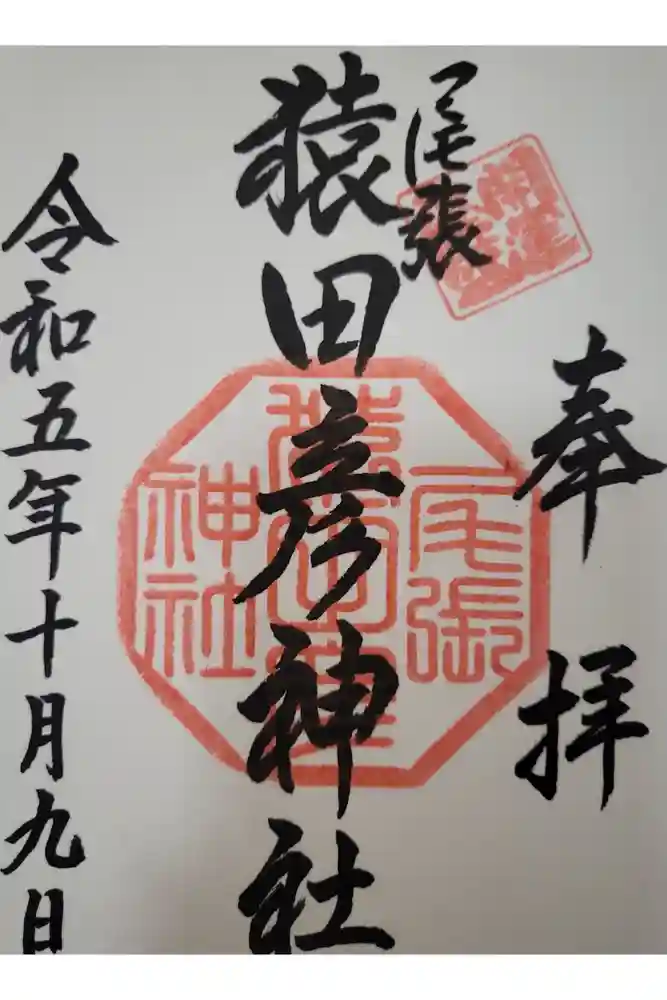 奉拝
尾張
猿田彦神社
令和五年十月九日
尾張
猿田彦
神社